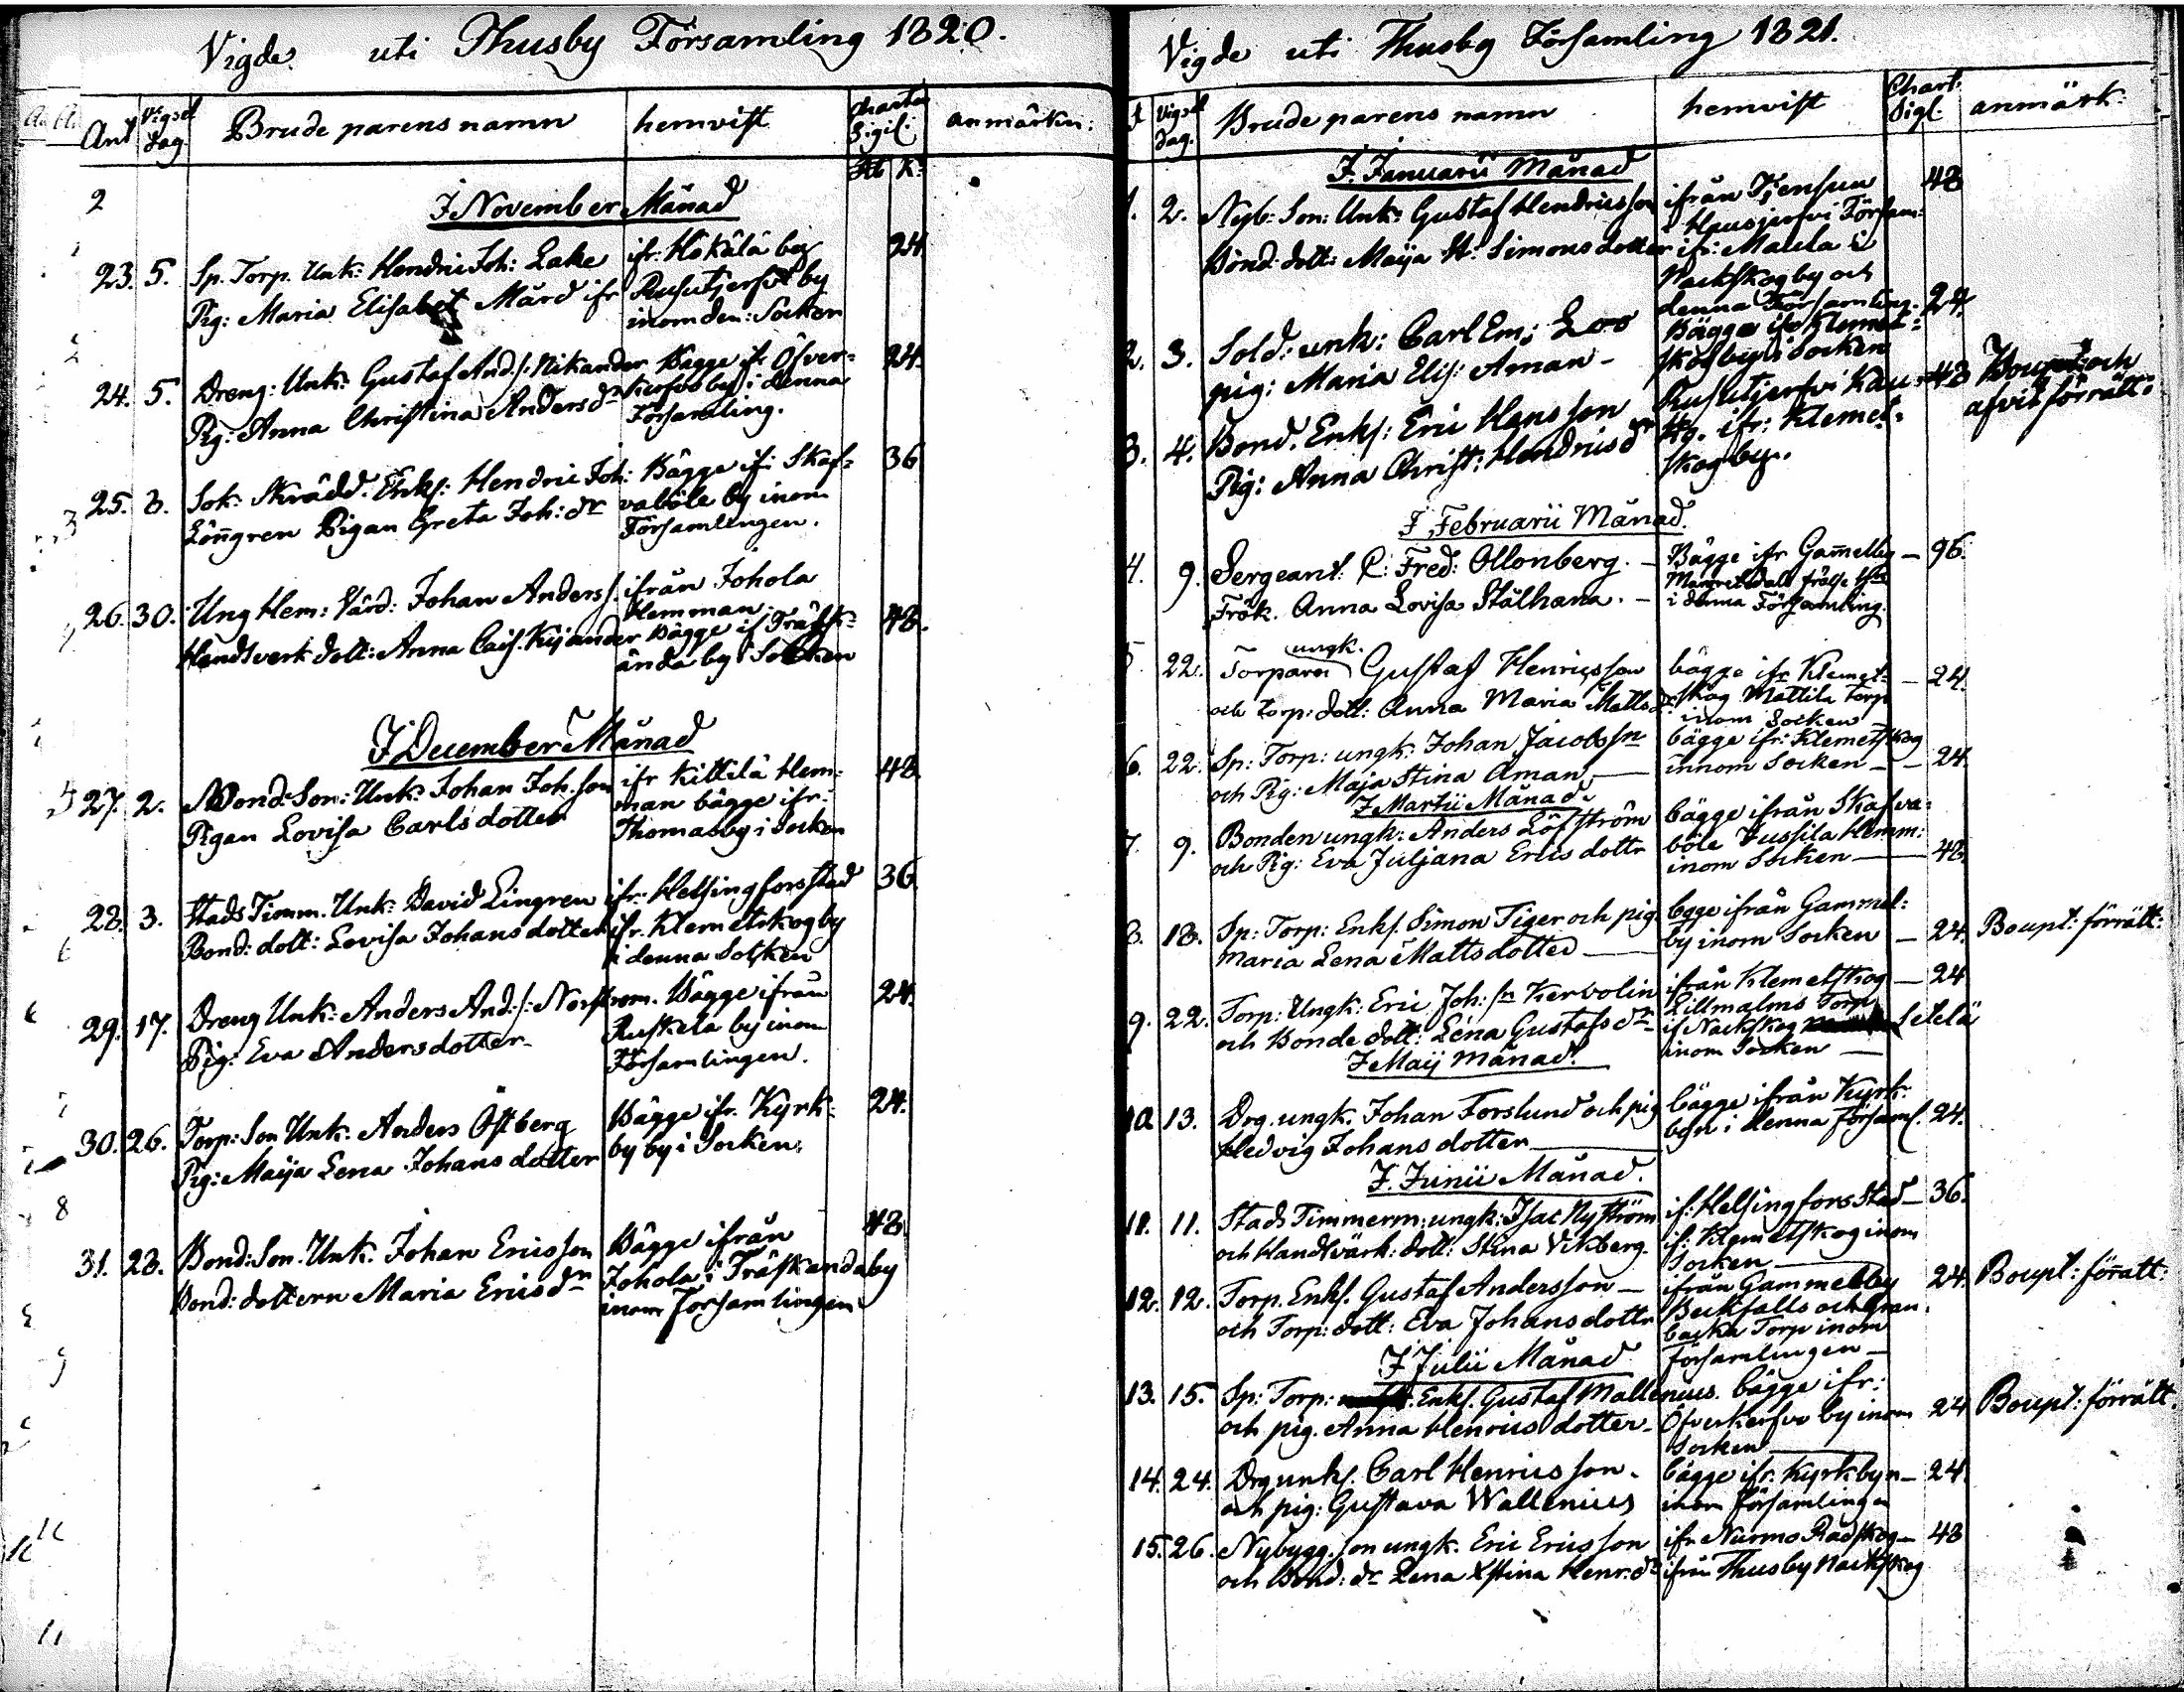 Vigde uti Thusby Församling 1820.
Ant Vigsel dag Brude parens namn hemvist Charta Sigil: anmärkn:
Rb K:
I November Månad
23. 5. Sp. Torp. Unk: Hendric Joh: Lake ifr: Hökälä by 24
Pig: Maria Elisabet Mård ifr Rusutjerfvi by
inom den: Socken
24. 5. Dreng: Unk: Gustaf And:s: Nikander Bägge if: Öfver= 24.
Pig: Anna Christina Anders dr kerfvo by i denna
Församling.
25. 3. Sok: Skrädd: Enkl: Hendric Joh: Bägge if: Skaf= 36
Lönngren Pigan Greta Joh: dr vaböle by inom
Församlingen.
26. 30. Ung Hem: Värd: Johan Anders s. ifrån Johola
Hemman
Handtverk dott: Anna Cais. Kijander Bägge if Träsk= 48.
ända by i Socken
I December Månad
27. 2. Bond: Son: Unk: Johan Joh. son ifr Kittilä Hem= 48
Pigan Lovisa Carls dotter man bägge ifr:
Thomasby i Socken
28. 3. Stads Timm. Unk: David Lingren ifr: Helsingfors stad 36
Bond: dott: Lovisa Johans dotter ifr. Klemetskog by
i denna Socken
29. 17. Dreng Unk: Anders And:s: Norstrom. Bägge ifrån 24.
Pig: Eva Anders dotter Ruskela by inom
Församlingen.
30. 26. Torp: Son Unk: Anders Östberg Bägge ifr. Kyrk= 24.
Pig: Maija Lena Johans dotter by by i Socken.
31. 28. Bond: Son. Unk: Johan Ericsson Bägge ifrån 48
Bond: dottern Maria Erics dr Johola i Träskanda by
inom Församlingen
Vigde uti Thusby Församling 1821.
Vigsel dag. Brude parens namn hemvist Chart: Sigl. anmärk:
I. Januarii Månad
1. 2. Nyb: Son: Unk: Gustaf Hendricsson ifrån 48
i Hausjerfvi Försam:
Bond: dott: Maija St: Simons dotter ifr: Maula i
Nackskog by och
denna Församling.
2. 3. Sold: unk: Carl Em: Loo Bägge ifr Klemet= 24.
pig: Maria Elis: Aman skog by i Socken
3. 4. Bond. Enkl: Eric Hansson Rusutjerfvi 48 Boupt: och
Pig: Anna Christ: Hendrics dr ifr: Klemet= afvit förrätt:
skog by.
I Februarii Månad.
4. 9. Sergeant: C: Fred: Ollonberg. Bägge ifr Gammelby 96.
Frök. Anna Lovisa Stålhana. frälse
i denna Församling.
5 22. Torparen ungk. Gustaf Henricsson bägge ifr Klemet= 24.
och Torp: dott: Anna Maria Matts dr skog Mattila Torp
inom Socken
6. 22. Sp: Torp: ungk: Johan Jacobs sn bägge ifr: Klemetskog
och Pig: Maja Stina Aman innom Socken 24.
I Martii Månad.
7. 9. Bonden ungk: Anders Löfström bägge ifrån Skafva=
och Pig: Eva Juljana Erics dottr böle Jussila Hemm:
inom Socken 48
8. 18. Sp: Torp: Enkl. Simon Tiger och pig bgge ifrån Gammel:
Maria Lena Mattsdotter by inom Socken 24. Boupt: förrätt:
9. 22. Torp: Ungk: Eric Joh: sn Kervolin ifrån Klemetskog 24
Lillmalms Torp
och Bonde dott: Lena Gustafs dr if Nackskog Setelä
inom Socken
I Maij Månad.
10. 13. Drg. ungk. Johan Forslund och pig bägge ifrån Kyrk:
Hedvig Johans dotter byn i denna Församl. 24.
I. Junii Månad.
11. 11. Stads Timmerm: ungk: Isac Nyström if: Helsingfors Stad 36.
och Handtvärk: dott: Stina Vikberg. if: Klemetskog inom
Socken
12. 12. Torp. Enkl. Gustaf Andersson ifrån Gammelby 24. Boupt: förrätt:
och Torp: dott: Eva Johans dottr Backfalls och Gran
backa Torp inom
Församlingen
I Julii Månad
13. 15. Sp: Torp: Enkl. Gustaf Mallenius. bägge ifr:
och pig. Anna Henrics dotter Öfverkerfvo by inom 24 Boupt: förrätt.
Socken
14. 24. Drg unkl. Carl Henricsson. bägge ifr. Kyrkbyn 24
och pig: Gustava Wallenius inom församlingen
15. 26. Nybygg. son ungk. Eric Ericsson ifr Nurmo Radskog 48
och Bond: dr Lena Xstina Henr: dr ifrån Thusby Nackskog